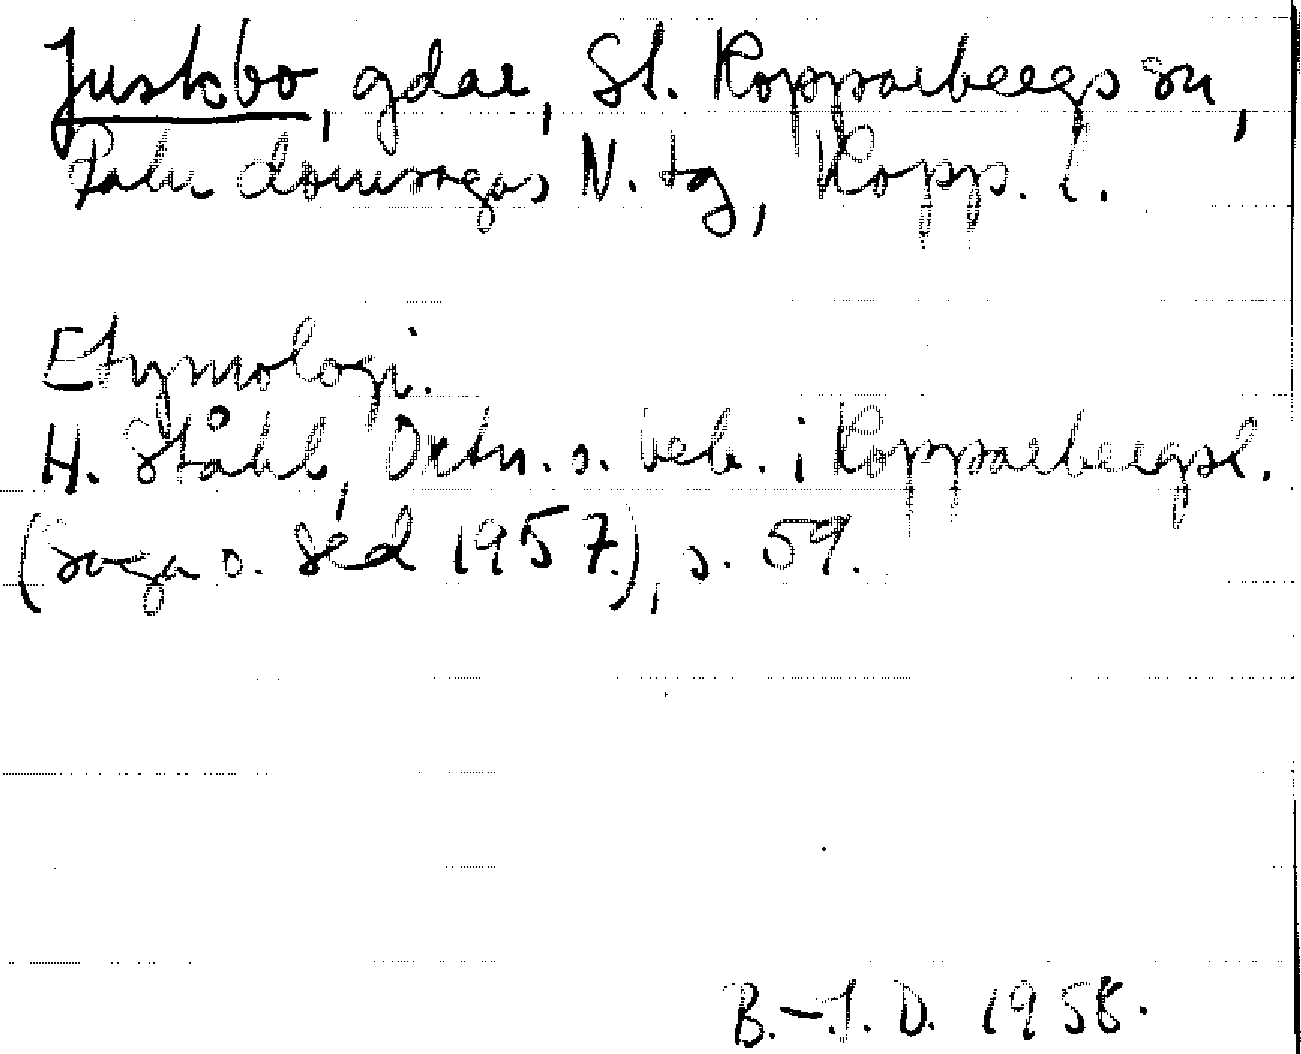 Juskbo, gdar, St. Kopparbergs sn,
Falu domsagas N. tg, Kopp. l.
Etymologi.
H. Ståhl, Ortn. o. beb. i Kopparbergsl.
(Saga o. Sed 1957.), s. 59.
B.-J. D. 1958.